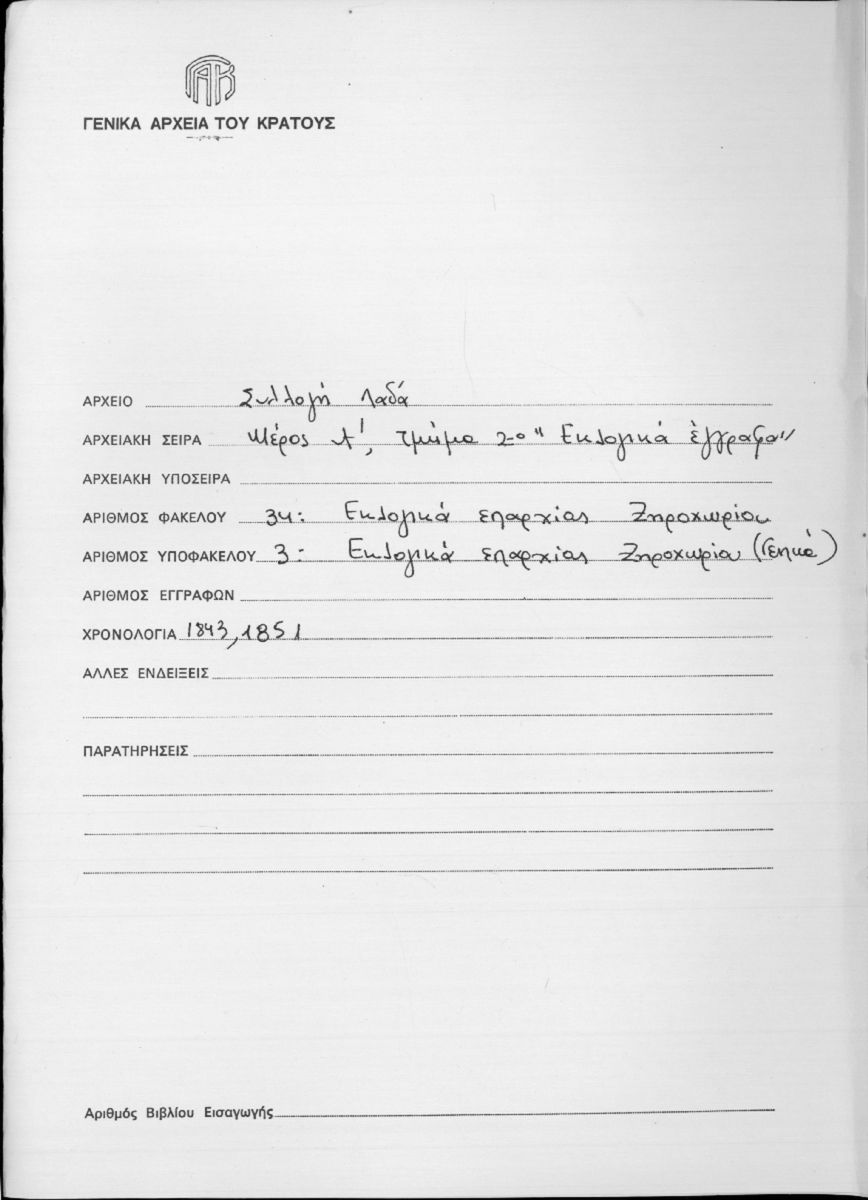 ΓΑΚ
ΓΕΝΙΚΑ ΑΡΧΕΙΑ ΤΟΥ ΚΡΑΤΟΥΣ
ΑΡΧΕΙΟ Συλλογή Λαδά
ΑΡΧΕΙΑΚΗ ΣΕΙΡΑ Μέρος Α', τμήμα 2ο "Εκλογικά έγγραφα"
ΑΡΧΕΙΑΚΗ ΥΠΟΣΕΙΡΑ
ΑΡΙΘΜΟΣ ΦΑΚΕΛΟΥ 34: Εκλογικά επαρχίας Ξηροχωρίου
ΑΡΙΘΜΟΣ ΥΠΟΦΑΚΕΛΟΥ 3: Εκλογικά επαρχίας Ξηροχωρίου (Γενικά)
ΑΡΙΘΜΟΣ ΕΓΓΡΑΦΩΝ
ΧΡΟΝΟΛΟΓΙΑ 1843, 1851
ΑΛΛΕΣ ΕΝΔΕΙΞΕΙΣ
ΠΑΡΑΤΗΡΗΣΕΙΣ
Αριθμός Βιβλίου Εισαγωγής